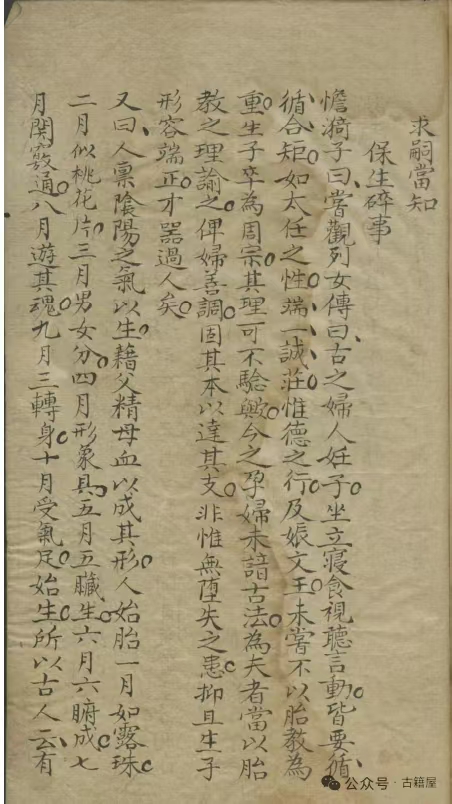 求嗣當知
保生碎事
憺漪子曰、嘗觀列女傳曰、古之婦人妊子。坐立寢食視聽言動。皆要循
循合矩。如太任之性。端一誠莊。惟德之行。及娠文王。未嘗不以胎教為
重。生子卒為周宗。其理可不驗歟。今之孕婦未諳古法。為夫者當以胎
教之理諭之。俾婦善調。固其本以達其支。非惟無墮失之患。抑且生子
形容端正。才器過人矣。
又曰、人禀陰陽之氣以生。藉父精母血以成其形。人始胎一月如露珠。
二月似桃花片。三月男女分。四月形象具。五月五臟生。六月六腑成。七
月関竅通。八月遊其魂。九月三轉身。十月受氣足。始生。所以古人云、有
公众号·古籍屋